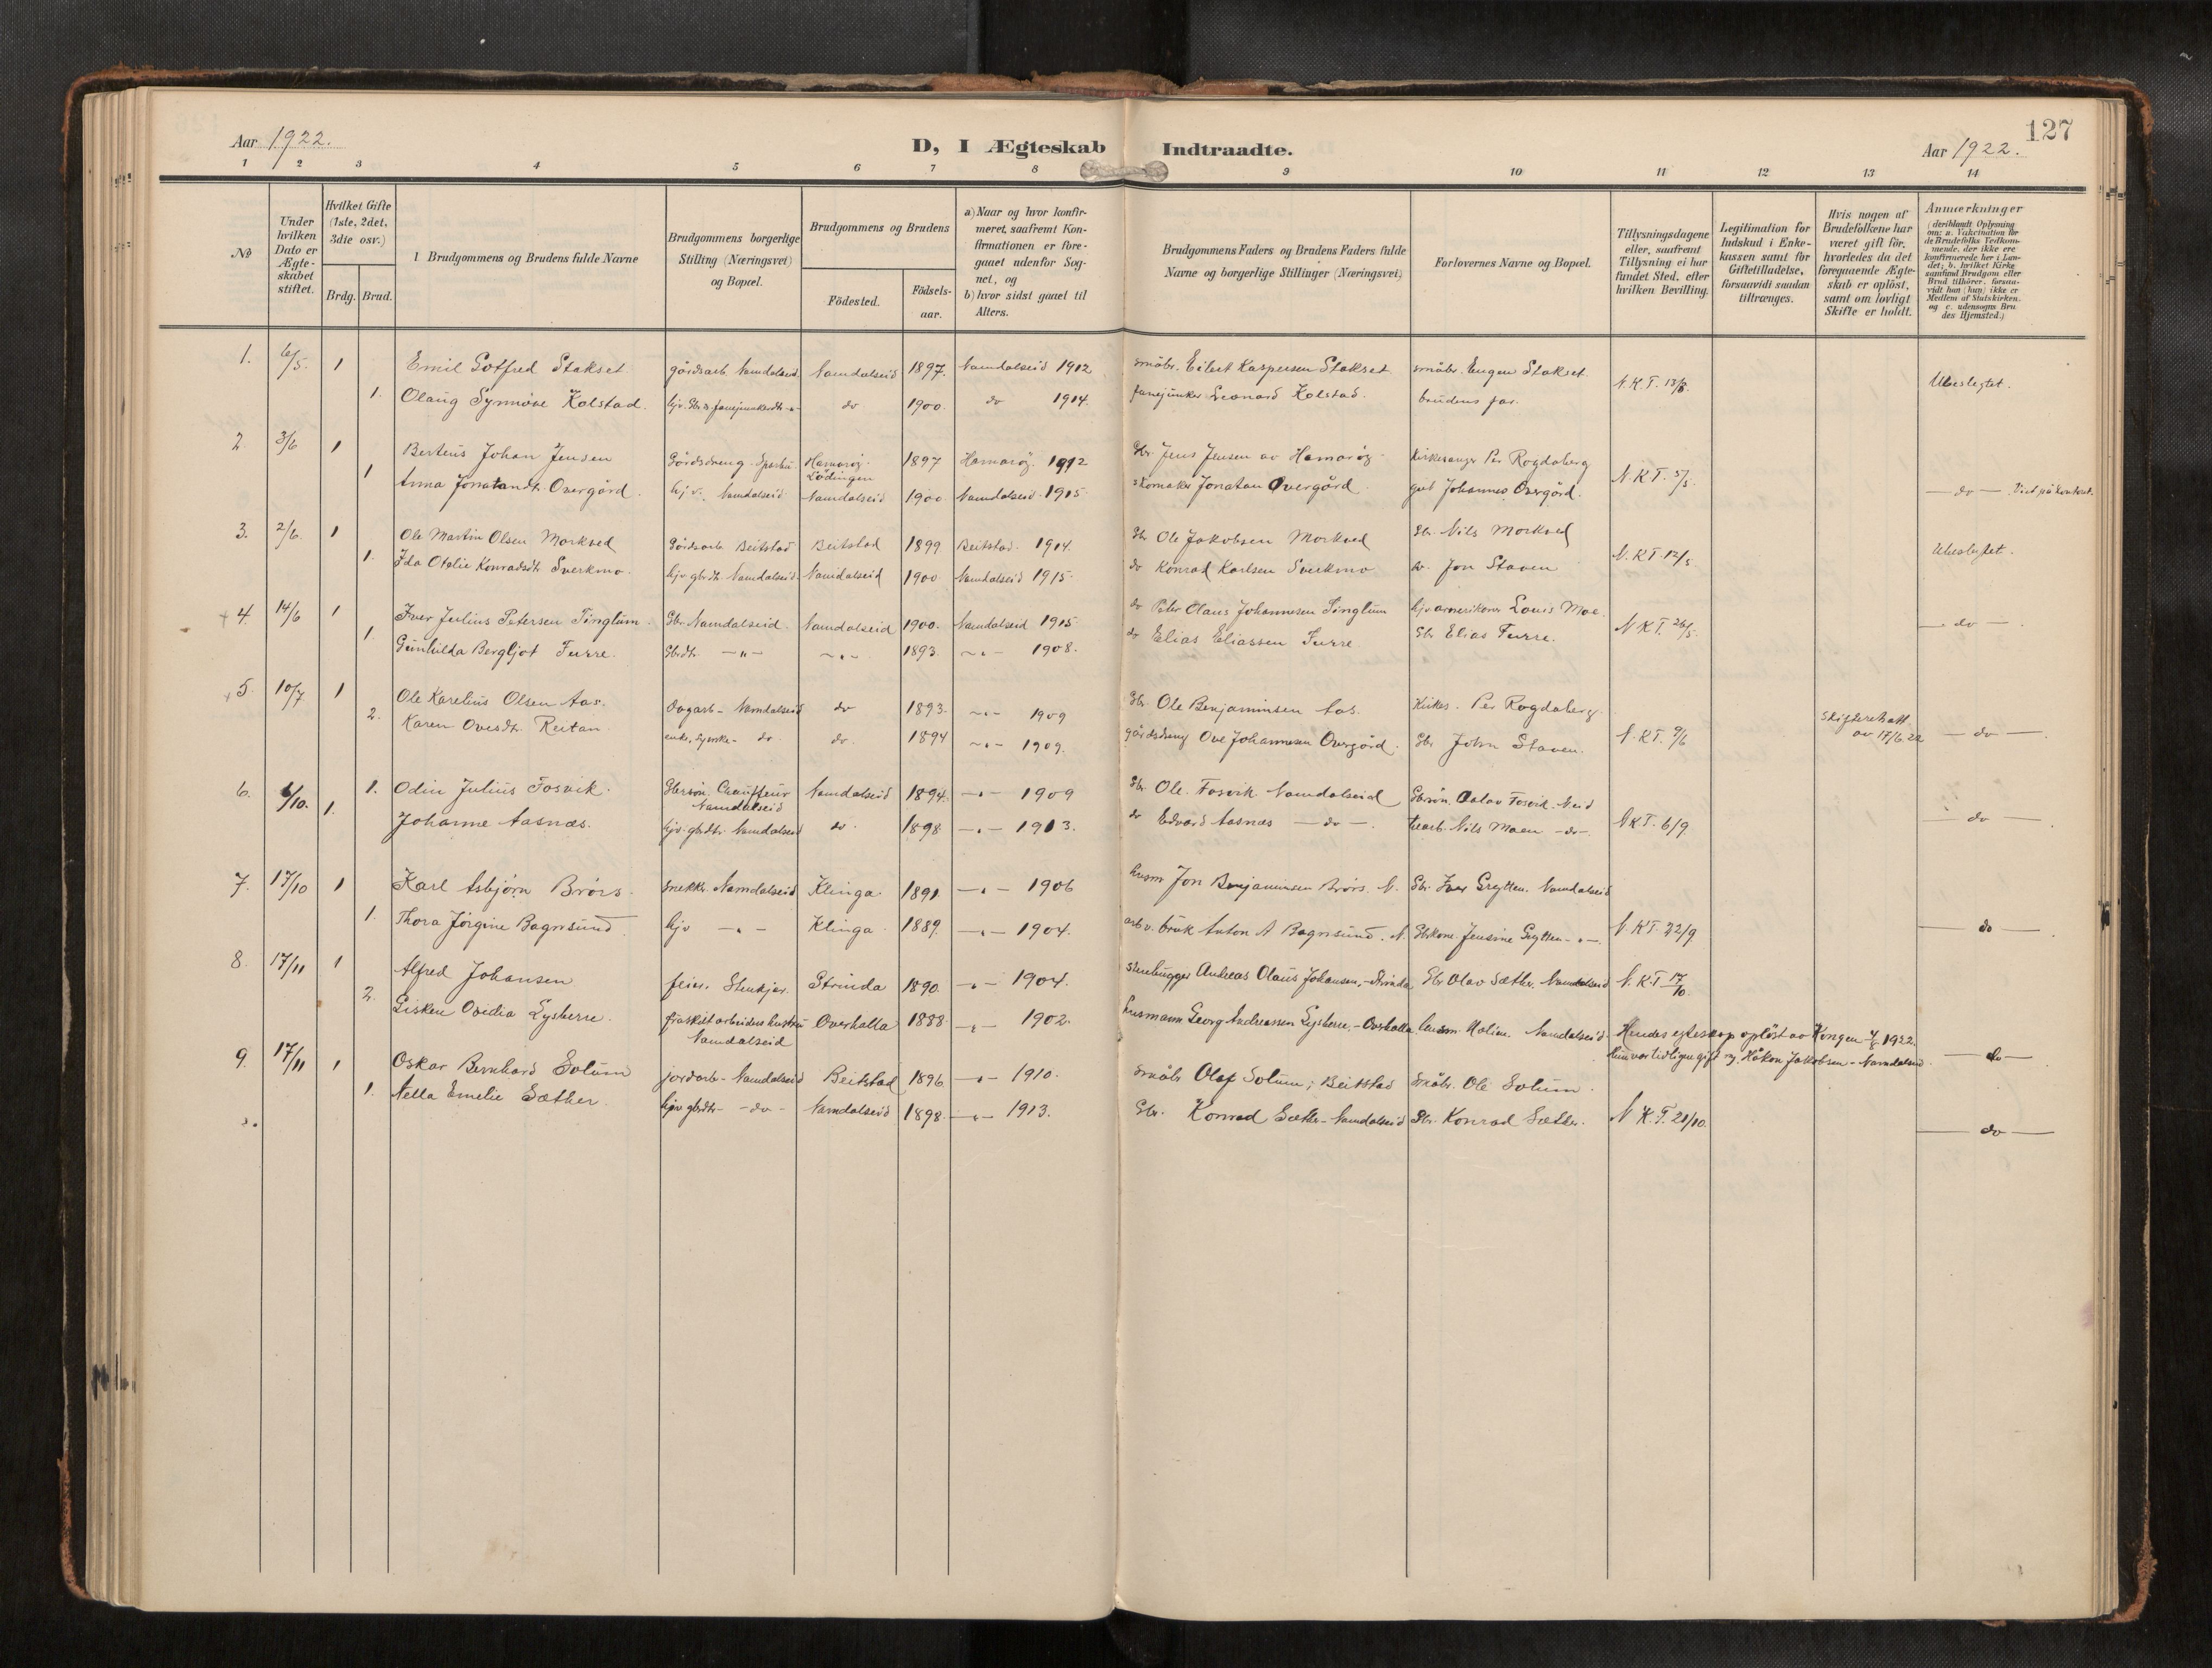 127
Aar 1922.
D, I Ægteskab Indtraadte.
Aar 1922.
1 2 3 4 5 6 7 8 9 10 11 12 13 14
No
Under hvilken Dato er Ægte-skabet stiftet.
Hvilket Gifte (1ste, 2det, 3die osv.)
Brdg. Brud.
Brudgommens og Brudens fulde Navne
Brudgommens borgerlige Stilling (Næringsvei) og Bopæl.
Brudgommens og Brudens
Födested. Födsels-aar.
a) Naar og hvor konfir-meret, saafremt Kon-firmationen er fore-gaaet udenfor Sog-net, og
b) hvor sidst gaaet til Alters.
Brudgommens Faders og Brudens Faders fulde Navne og borgerlige Stillinger (Næringsvei)
Forlovernes Navne og Bopæl.
Tillysningsdagene eller, saafremt Tillysning ei har fundet Sted, efter hvilken Bevilling.
Legitimation for Indskud i Enke-kassen samt for Giftetilladelse, forsaavidt saadan tiltrænges.
Hvis nogen af Brudefolkene har været gift før, hvorledes da det foregaaende Ægte-skab er opløst, samt om lovligt Skifte er holdt.
Anmærkninger
(deriblandt Oplysning om: a. Vakcination for de Brudefolks Vedkom-mende, der ikke ere konfirmerede her i Lan-det; b. hvilket Kirke-samfund Brudgom eller Brud tilhører, forsaa-vidt han (hun) ikke er Medlem af Statskirken, og c. udensogns Bru-des Hjemsted.)
1. 6/5. 1 Emil Gotfred Stakset gårdsarb. Namdalseid Namdalseid 1897. Namdalseid 1912 småbr. Eilert Kaspersen Stakset småbr. Eugen Stakset. N.K.T. 13/3. Ubeslegtet.
1. Olaug Synnøve Kolstad. hjv. do 1900. do 1914. fanejunker Leonard Kolstad. brudens far.
2 3/6 1 Berteus Johan Jensen Gårdsdreng. Sparbu Hamarøy. Lödingen 1897 Hamarøy. 1912 Gbr. Jens Jensen av Hamarøy Kirkesanger Per Rogdaberg N.K.T. 5/5.
1 Anna Jonatandt. Overgård hjv. Namdalseid Namdalseid 1900 Namdalseid 1915 skomaker Jonatan Overgård gut Johannes Overgård. — do — . Viet på kontoret.
3. 2/6. 1 Ole Martin Olsen Morkved Gårdsarb Beitstad Beitstad 1899 Beitstad. 1914. Gbr Ole Jakobsen Morkved Gbr. Nils Morkved N.K.T. 12/5 Ubeslegtet.
1. Ida Otelie Konradsdt. Sverkmo. hjv. gbrdt. Namdalseid Namdalseid 1900 Namdalseid 1915. do Konrad Karlsen Sverkmo Jon Staven
4. 14/6 1 Iver Julius Petersen Tinglum. Gbr. Namdalseid. Namdalseid 1900. Namdalseid 1915 do Peter Olaus Johannesen Tinglum hjv. amerikaner Louis Moe. N.K.T. 26/5. — do — .
1. Gunhilda Bergljot Furre. Gbrdt. — " — 1893. 1908. do Elias Eliassen Furre. Gbr Elias Furre.
5. 10/7 1 Ole Karelius Olsen Aas. Dagarb. Namdalseid do 1893. 1909 Gbr. Ole Benjaminsen Aas. Kirkes. Per Rogdaberg. Skifteretsatt. av 17/6 22
2. Karen Ovesdt. Reitan enke, syerske do. do. 1894 1909. gårdsdreng Ove Johannesen Overgård. Gbr John Staven. N.K.T. 9/6 — do — .
6. 6/10. 1. Odin Julius Fosvik. Gbrsøn. Chauffeur Namdalseid Namdalseid 1894. 1909 Gbr. Ole Fosvik Namdalseid Gbrsøn. Fosvik. N.eid
1. Johanne Aasnæs. hjv. gbrdtr. Namdalseid do. 1898 1913. do Edvard Aasnæs — do — . Nils Moen — do —. N.K.T. 6/9 — do — .
7. 17/10 1 Karl Asbjørn Brørs. snekker. Namdalseid Klinga. 1891. 1906 husm Jon Benjaminsen Brørs. N. Gbr. Iver Grytten. Namdalseid
1. Thora Jørgine Bagnsund. hjv — " — Klinga 1889. 1904. arb. v. bruk Anton A Bagnsund. N. Gbrkone Jensine Grytten N.K.T. 22/9 do
8. 17/11 1 Alfred Johansen feier. Stenkjær. Strinda 1890. 1904. stenhugger Andreas Olaus Johansen, Strinda Gbr Olav Sæther. Namdalseid N.K.T 17/10.
2. Gisken Ovidia Lysberre. fraskilt arbeiders hustru Namdalseid Overhalla 1888 1902. husmann Georg Andreassen Lysberre, - Overhalla Namdalseid Hendes egteskap oplöst av Kongen 1922. Hun var tidligere gift m. Håkon Jakobsen - Namdalseid. — do —
9. 17/11 1 Oskar Bernhard Solum jordarb. - Namdalseid Beitstad 1896 1910. småbr Olaf Solum; Beitstad Småbr. Ole Solum.
1. Nella Emelie Sæther. hjv. gbrdtr. - do - Namdalseid 1898. 1913. Gbr. Konrad Sæther - Namdalseid Gbr. Konrad Sæther. N.K.T. 21/10. — do —